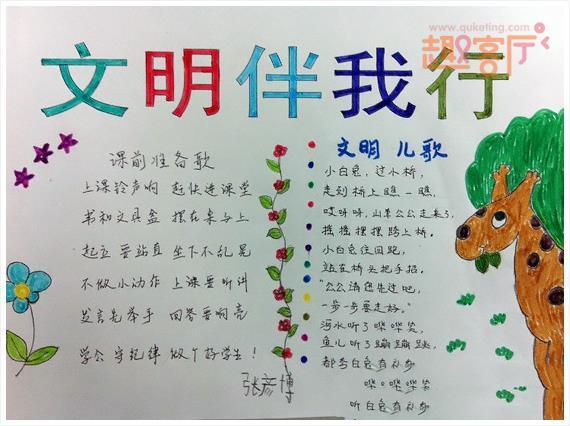 www.quketing.com
趣客厅
文明伴我行
课前准备歌
上课铃声响 赶快进课堂
书和文具盒 摆在桌上
起立要站直 坐下不乱晃
不做小动作 上课要听讲
发言先举手 回答要响亮
学会守纪律 做个好学生!
张彦博
文明 儿歌
小白兔,过小桥,
走到桥上瞧一瞧,
哎呀呀,山羊公公走来了,
摇摇摆摆跨上桥。
小白兔往回跑,
站在桥头把手招。
"公公请您先过吧,
一步一步要走好。"
河水听了哗哗笑,
鱼儿听了蹦蹦跳,
都夸白兔有礼貌
哗哗哗哗笑
听白兔有礼貌